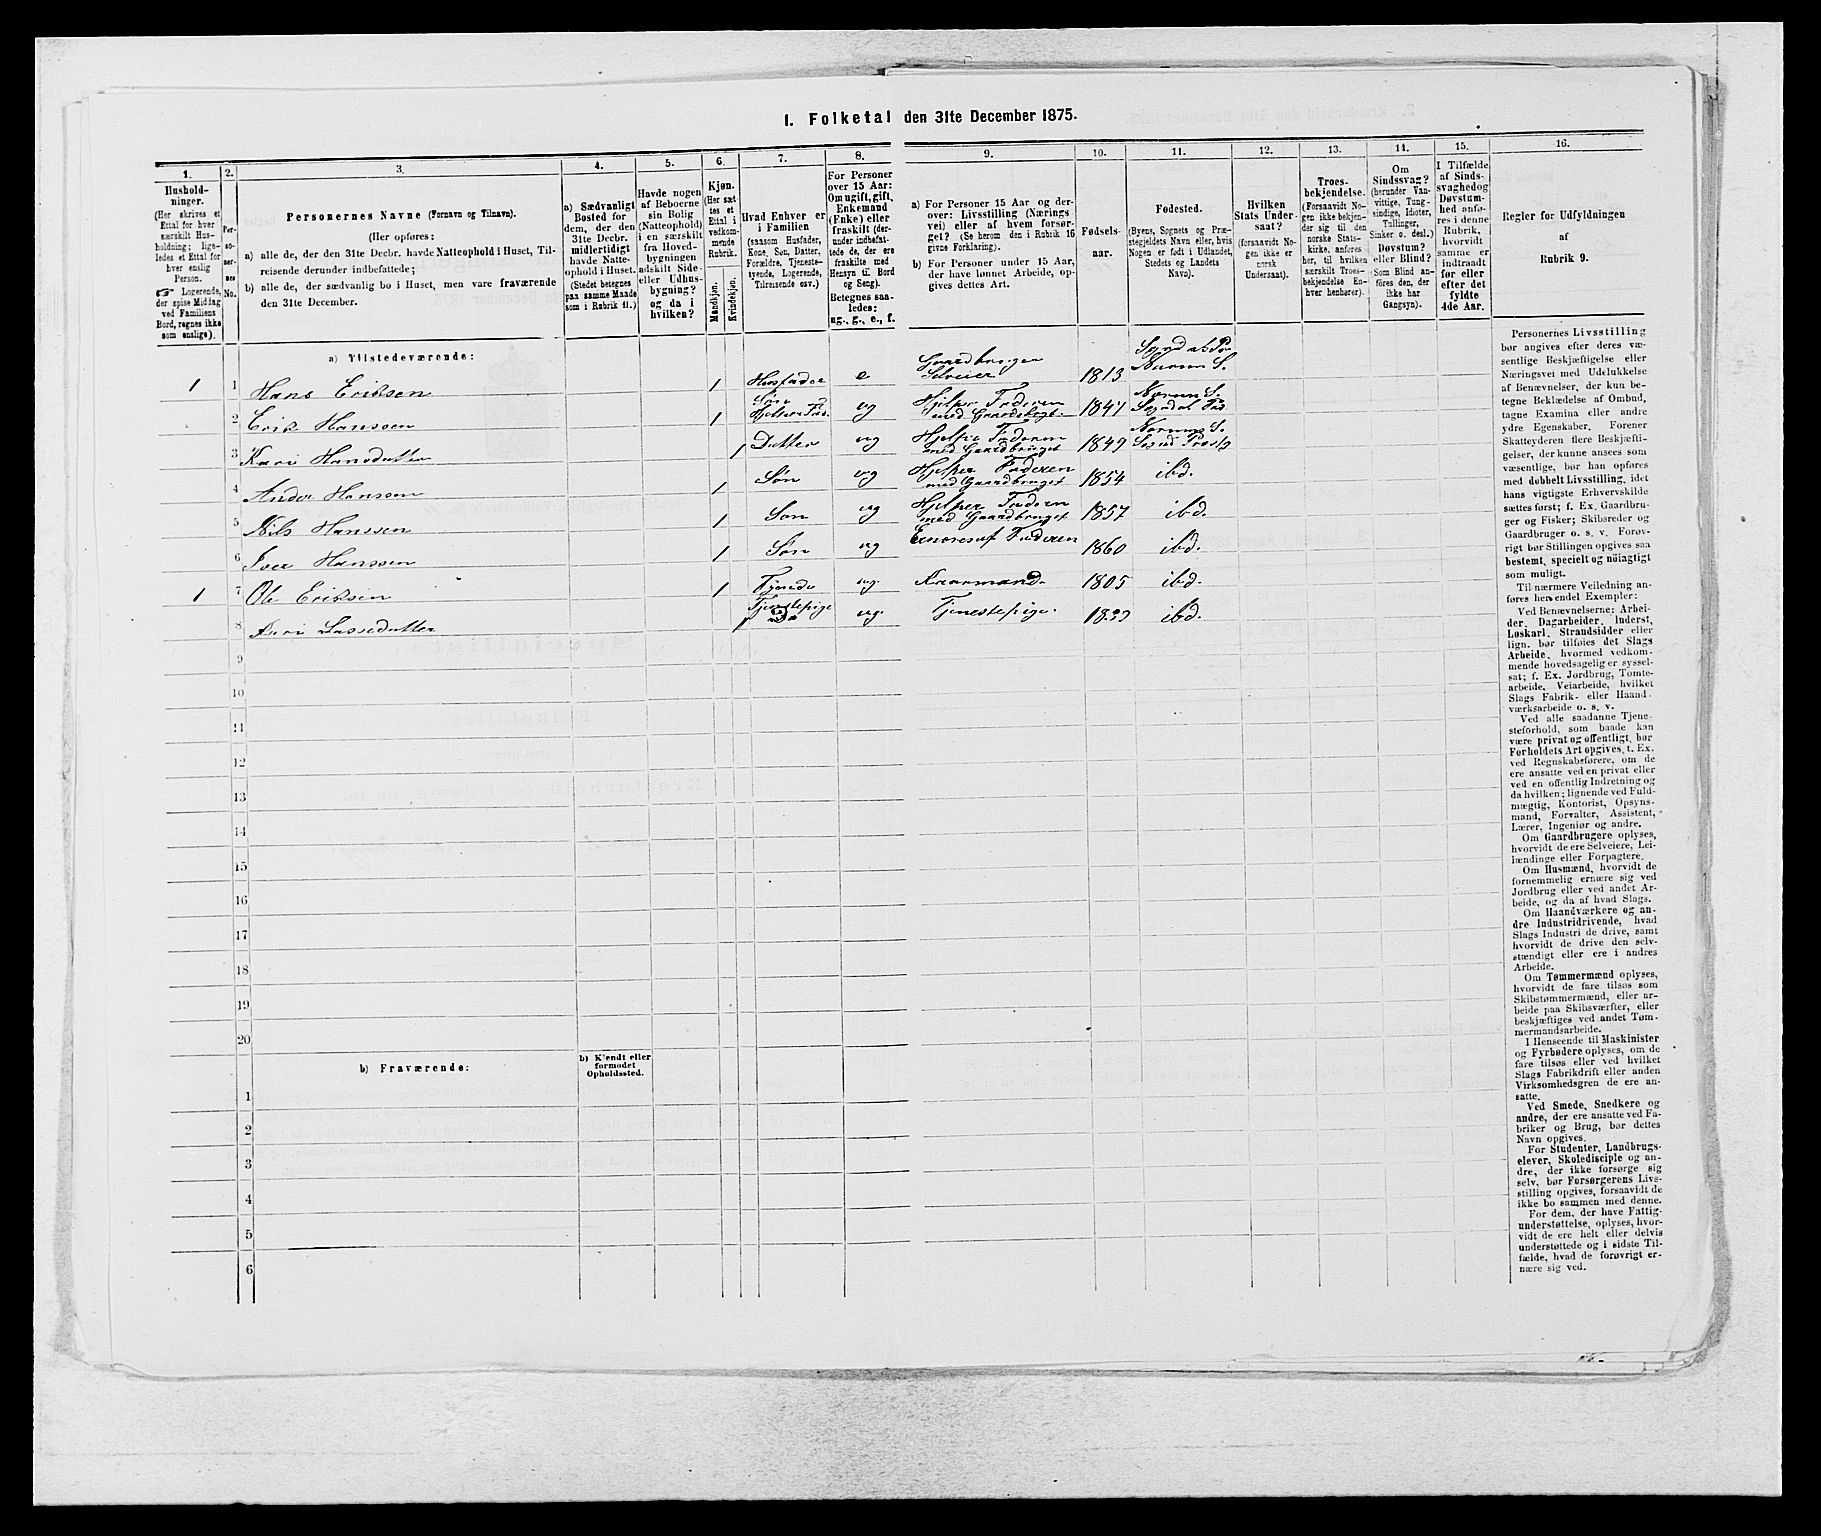 1. Folketal den 31te December 1875.
1.
Hushold-
ninger.
(Her skrives et
Ettal for hver
særskilt Hus-
holdning; lige-
ledes et Ettal for
hver enslig
Person.
☞ Logerende,
der spise Middag
ved Familiens
Bord, regnes ikke
som enslige).
2.
Per-
so-
ner-
nes
No.
3.
Personernes Navne (Fornavn og Tilnavn).
(Her opføres:
a) alle de, der den 31te Decbr. havde Natteophold i Huset, Til-
reisende derunder indbefattede;
b) alle de, der sædvanlig bo i Huset, men vare fraværende
den 31te December.
4.
a) Sædvanligt
Bosted for
dem, der den
31te Decbr.
midlertidigt
havde Natte-
ophold i Huset.
(Stedet betegnes
paa samme Maade
som i Rubrik 11.)
5.
Havde nogen
af Beboerne
sin Bolig
(Natteophold)
i en særskilt
fra Hoved-
bygningen
adskilt Side-
eller Udhus-
bygning?
og da i
hvilken?
6.
Kjøn.
(Her sæt-
tes et
Ettal i
vedkom-
mende
Rubrik.
Mandkjøn.
Kvindekjøn.
7.
Hvad Enhver er
i Familien
(saasom Husfader,
Kone, Søn, Datter,
Forældre, Tjeneste-
tyende, Logerende,
Tilreisende osv.)
8.
For Personer
over 15 Aar:
Om ugift, gift,
Enkemand
(Enke) eller
fraskilt (der-
under indbefat-
tede de, der ere
fraskilte med
Hensyn til Bord
og Seng).
Betegnes saa-
ledes:
ug., g., e., f.
9.
a) For Personer 15 Aar og der-
over: Livsstilling (Nærings
vei) eller af hvem forsør-
get? (Se herom den i Rubrik 16
givne Forklaring).
b) For Personer under 15 Aar,
der have lønnet Arbeide, op-
gives dettes Art.
10.
Fødsels-
aar.
11.
Fødested.
(Byens, Sognets og Præ-
stegjeldets Navn eller, hvis
Nogen er født i Udlandet,
Stedets og Landets
Navn).
12.
Hvilken
Stats Under-
saat?
(forsaavidt No-
gen ikke er
norsk
Undersaat).
13.
Troes-
bekjendelse.
(Forsaavidt No-
gen ikke bekjen-
der sig til den
norske Stats-
kirke, anføres
her, til hvilken
særskilt Troes-
bekjendelse En-
hver henhører).
14.
Om
Sindssvag?
(herunder Van-
vittige, Tung-
sindige, Idioter,
Tullinger,
Sinker o. desl.)
Døvstum?
eller Blind?
(Som Blind an-
føres den, der
ikke har
Gangsyn).
15.
I Tilfælde
af Sinds-
svaghed og
Døvstum-
hed anfø-
res i denne
Rubrik,
hvorvidt
samme er
indtraadt
før eller
efter det
fyldte
4de Aar.
16.
Regler for Udfyldningen
af
Rubrik 9.
a) Tilstedeværende:
1 1 Hans Eriksen 1 Husfader e Gaardbruger Selveier 1813
2 Erik Hanssen 1 Søn ug Hjelper Faderen med 1847
3 Kari Hansdatter 1 Datter ug Hjelper Faderen med Gaardbruget 1849
4 Anders Hanssen 1 Søn ug Hjelper Faderen med Gaardbruget 1854 ibd.
5 Nils Hanssen 1 Søn ug Hjelper Faderen med Gaardbruget 1857 ibd.
6 Iver Hanssen 1 Søn ug Ernæres af Faderen 1860 ibd.
1 7 Ole Eriksen 1 ug. 1805 ibd.
8 Kari Lassedatter 1 Tjenestepige ug. Tjenestepige. ibd.
9
10
11
12
13
14
15
16
17
18
19
20
b) Fraværende:
b) Kjendt eller
formodet
Opholdssted.
1
2
3
4
5
6
Personernes Livsstilling
bør angives efter deres væ-
sentlige Beskjæftigelse eller
Næringsvei med Udelukkelse
af Benævnelser, der kun be-
tegne Beklædelse af Ombud,
tagne Examina eller andre
ydre Egenskaber. Forener
Skatteyderen flere Beskjæfti-
gelser, der kunne ansees som
væsentlige, bør han opføres
med dobbelt Livsstilling, idet
hans vigtigste Erhvervskilde
sættes først; f. Ex. Gaardbru-
ger og Fisker; Skibsreder og
Gaardbruger o. s. v. Forøv-
rigt bør Stillingen opgives saa
bestemt, specielt og nøiagtigt
som muligt.
Til nærmere Veiledning an-
føres her endel Exempler:
Ved Benævnelserne: Arbei-
der, Dagarbeider, Inderst,
Løskarl, Strandsidder eller
lign. bør tilføies det Slags
Arbeide, hvormed vedkom-
mende hovedsagelig er syssel-
sat; f. Ex. Jordbrug, Tomte-
arbeide, Veiarbeide, hvilket
Slags Fabrik- eller Haand-
værksarbeide o. s. v.
Ved alle saadanne Tjene-
steforhold, som baade kan
være privat og offentligt, bør
Forholdets Art opgives, t. Ex.
ved Regnskabsførere, om de
ere ansatte ved en privat eller
ved en offentlig Indretning og
da hvilken; lignende ved Fuld-
mægtig, Kontorist, Opsyns-
mand, Forvalter, Assistent,
Lærer, Ingeniør og andre.
Om Gaardbrugere oplyses,
hvorvidt de ere Selveiere, Lei-
lændinge eller Forpagtere.
Om Husmænd, hvorvidt de
fornemmelig ernære sig ved
Jordbrug eller ved andet Ar-
beide, og da af hvad Slags.
Om Haandværkere og an-
dre Industridrivende, hvad
Slags Industri de drive, samt
hvorvidt de drive den selv-
stændigt eller ere i andres
Arbeide.
Om Tømmermænd oplyses,
hvorvidt de fare tilsøs som
Skibstømmermænd, eller ar-
beide paa Skibsværfter, eller
beskjæftiges ved andet Tøm-
mermandsarbeide.
I Henseende til Maskinister
og Fyrbødere oplyses, om de
fare tilsøs eller ved hvilket
Slags Fabrikdrift eller anden
Virksomhedsgren de ere an-
satte.
Ved Smede, Snedkere og
andre, der ere ansatte ved Fa-
briker og Brug, bør dettes
Navn opgives.
For Studenter, Landbrugs-
elever, Skoledisciple og an-
dre, der ikke forsørge sig
selv, bør Forsørgerens Livs-
stilling opgives, forsaavidt de
ikke bo sammen med denne.
For dem, der have Fattig-
understøttelse, oplyses, hvor-
vidt de ere helt eller delvis
understøttede og i sidste Til-
fælde, hvad de forøvrigt er-
nære sig ved.